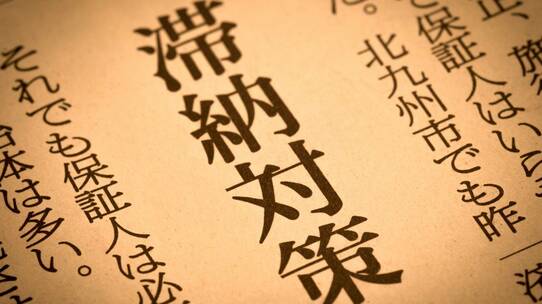 正、施
保証人はい
。北九州市でも昨
滞納対策
それでも保証人は必
は多い。